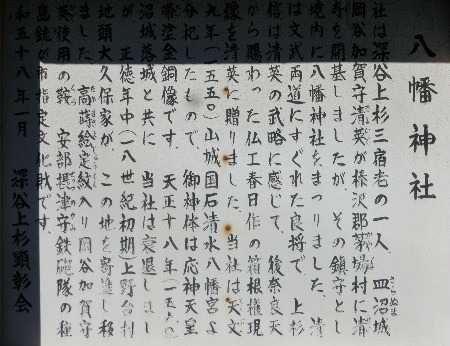 八幡神社
社は深谷上杉三宿老の一人 皿沼城
岡谷加賀守清英が榛沢郡菊場村に清
寺を開基しましたが、その鎮守とし
境内に八幡神社をまつりました。清
は文武両道にすぐれた良将で 上杉
信は清英の武略に感じて、後奈良天
から賜わった仏工春日作の箱根権現
像を清英に贈りました。当社は天文
九年(一五五〇)山城国石清水八幡宮よ
分祀したもので、御神体は応神天皇
漆塗金銅像です。天正十八年(一五九〇)
沼城落城と共に 当社は衰退しまし
が 正徳年中(一八世紀初期)上野台村
地頭大久保家が、この地を寄進し移
ました。高蒔絵定紋入り岡谷加賀守
英使用の鞍 安部摂津守鉄砲隊の種
島銃が市指定文化財です。
和五十八年一月 深谷上杉顕彰会